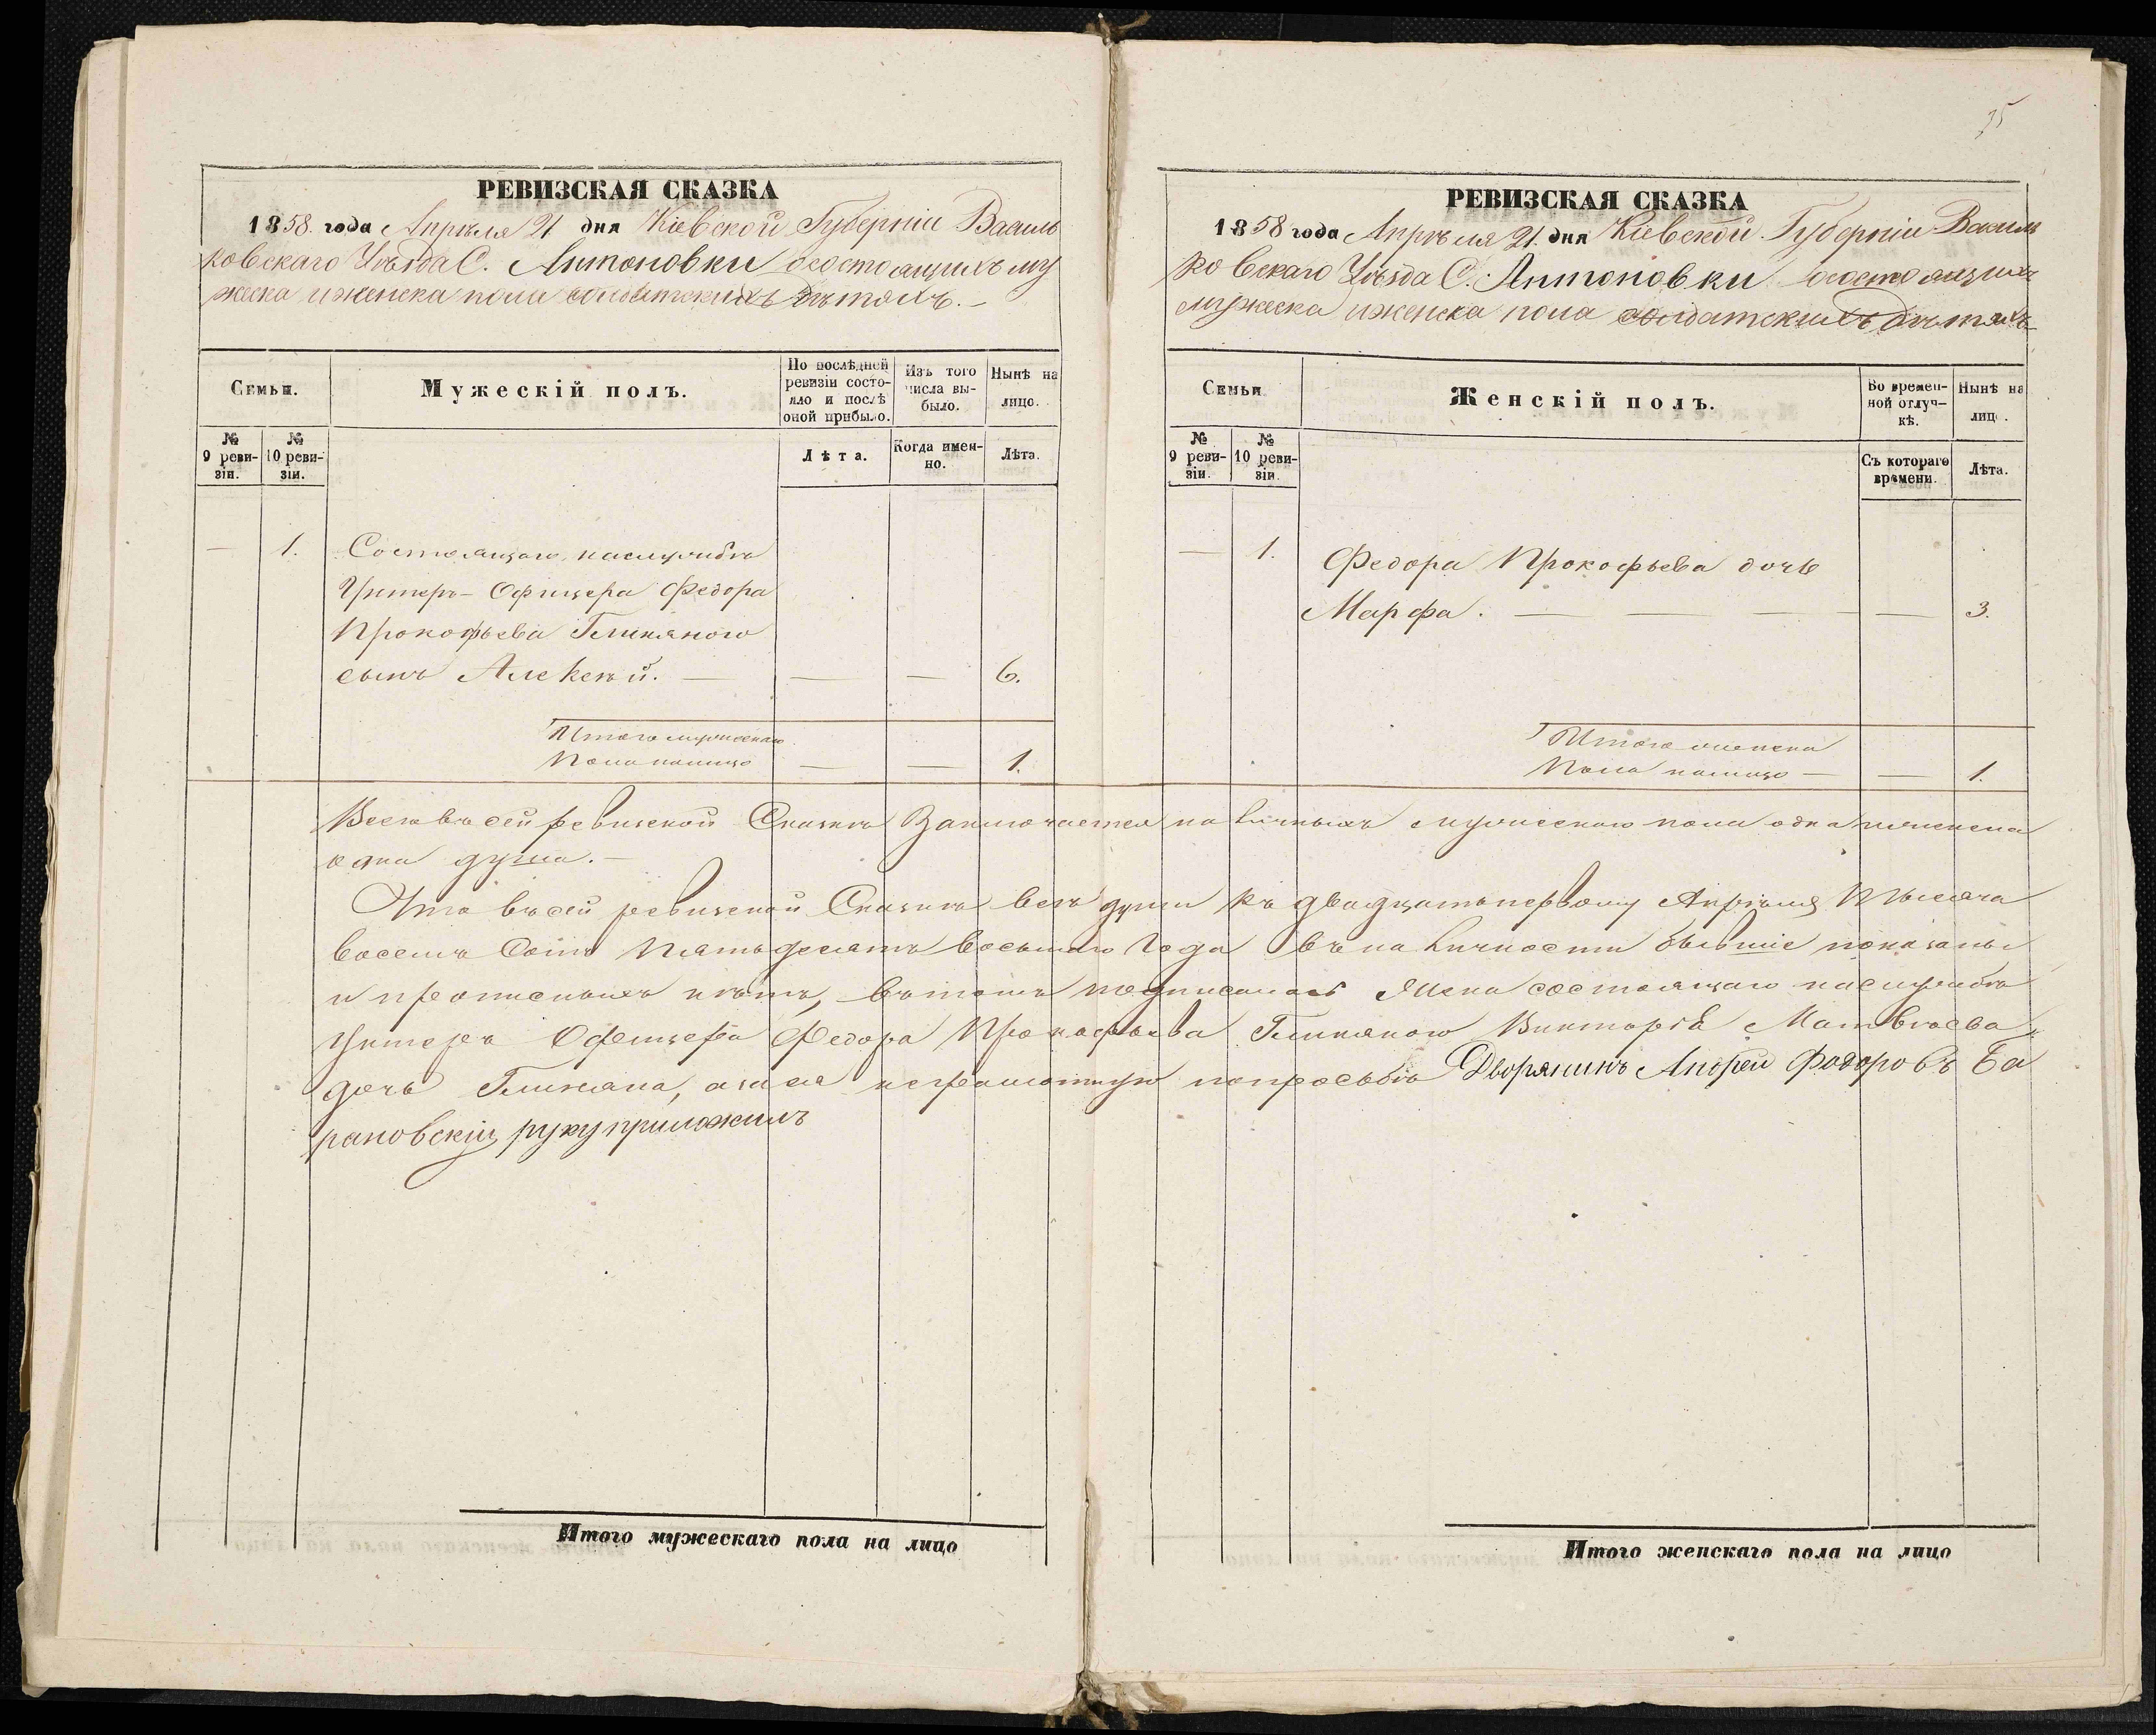 РЕВИЗСКАЯ СКАЗКА
1858. года Апрѣля 21 дня Кіевской Губерніи Василь
ковскаго Уѣзда С. Антоновки осостоящихъ му
жеска иженска пола солдатскихъ дѣтяхъ. —
Семьи.
Мужескій полъ.
По послѣдней ревизіи состо-
яло и послѣ оной прибыло.
Изъ того числа вы-
было.
Нынѣ на лицо.
№ 9 реви-
зіи.
№ 10 реви-
зіи.
Лѣта.
Когда имен-
но.
Лѣта.
— 1. Состоящаго наслужбѣ
Унтеръ-Офицера Федора
Прокофьева Глиняного
сынъ Алексѣй. — — — 6.
Итого мужескаго
Пола налицо — — 1.
35
РЕВИЗСКАЯ СКАЗКА
1858 года Апрѣля 21. дня Кіевской Губерніи Василь
ковскаго Уѣзда С. Антоновки осостоящихъ
мужеска иженска пола солдатскихъ дѣтяхъ
Семьи
Женскій полъ.
Во времен-
ной отлуч-
кѣ.
Нынѣ на лицо.
№ 9 реви-
зіи.
№ 10 реви-
зіи.
Съ котораго времени.
Лѣта.
— 1. Федора Прокофьева дочь
Марфа. — — — — 3.
Итого женска
Пола налицо — — 1.
Всего въсей ревизской Сказкѣ Заключается наличныхъ мужескаго пола одна иженска
одна душа. —
Что въсей ревизской Сказкѣ всѣ души къ двадцатьпервому Апрѣля Тысяча
восемь Сотъ Пятьдесятъ восьмаго Года въ наличности бывшіе показаны
и прописныхъ нѣтъ, вътомъ подписалась Жена состоящаго наслужбѣ
Унтеръ Офицера Федора Прокофьева Глиняного Викторія Матвѣева
дочь Глиняна, азаея неграмотную попросьбѣ Дворянинъ Андрей Федоровъ Ба
рановскій руку приложилъ
Итого мужескаго пола на лицо
Итого женскаго пола на лицо